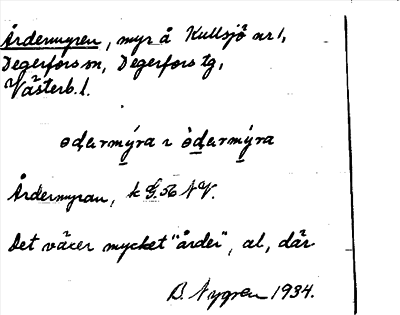 Årdermyren, myr å Kullsjö nr 1,
Degerfors sn, Degerfors tg,
Västerb. l.
ədərmýra ı ə̀dərmýra
Årdermyran, k G. NV.
Det växer mycket "årder", al, där
B. Nygren 1934.